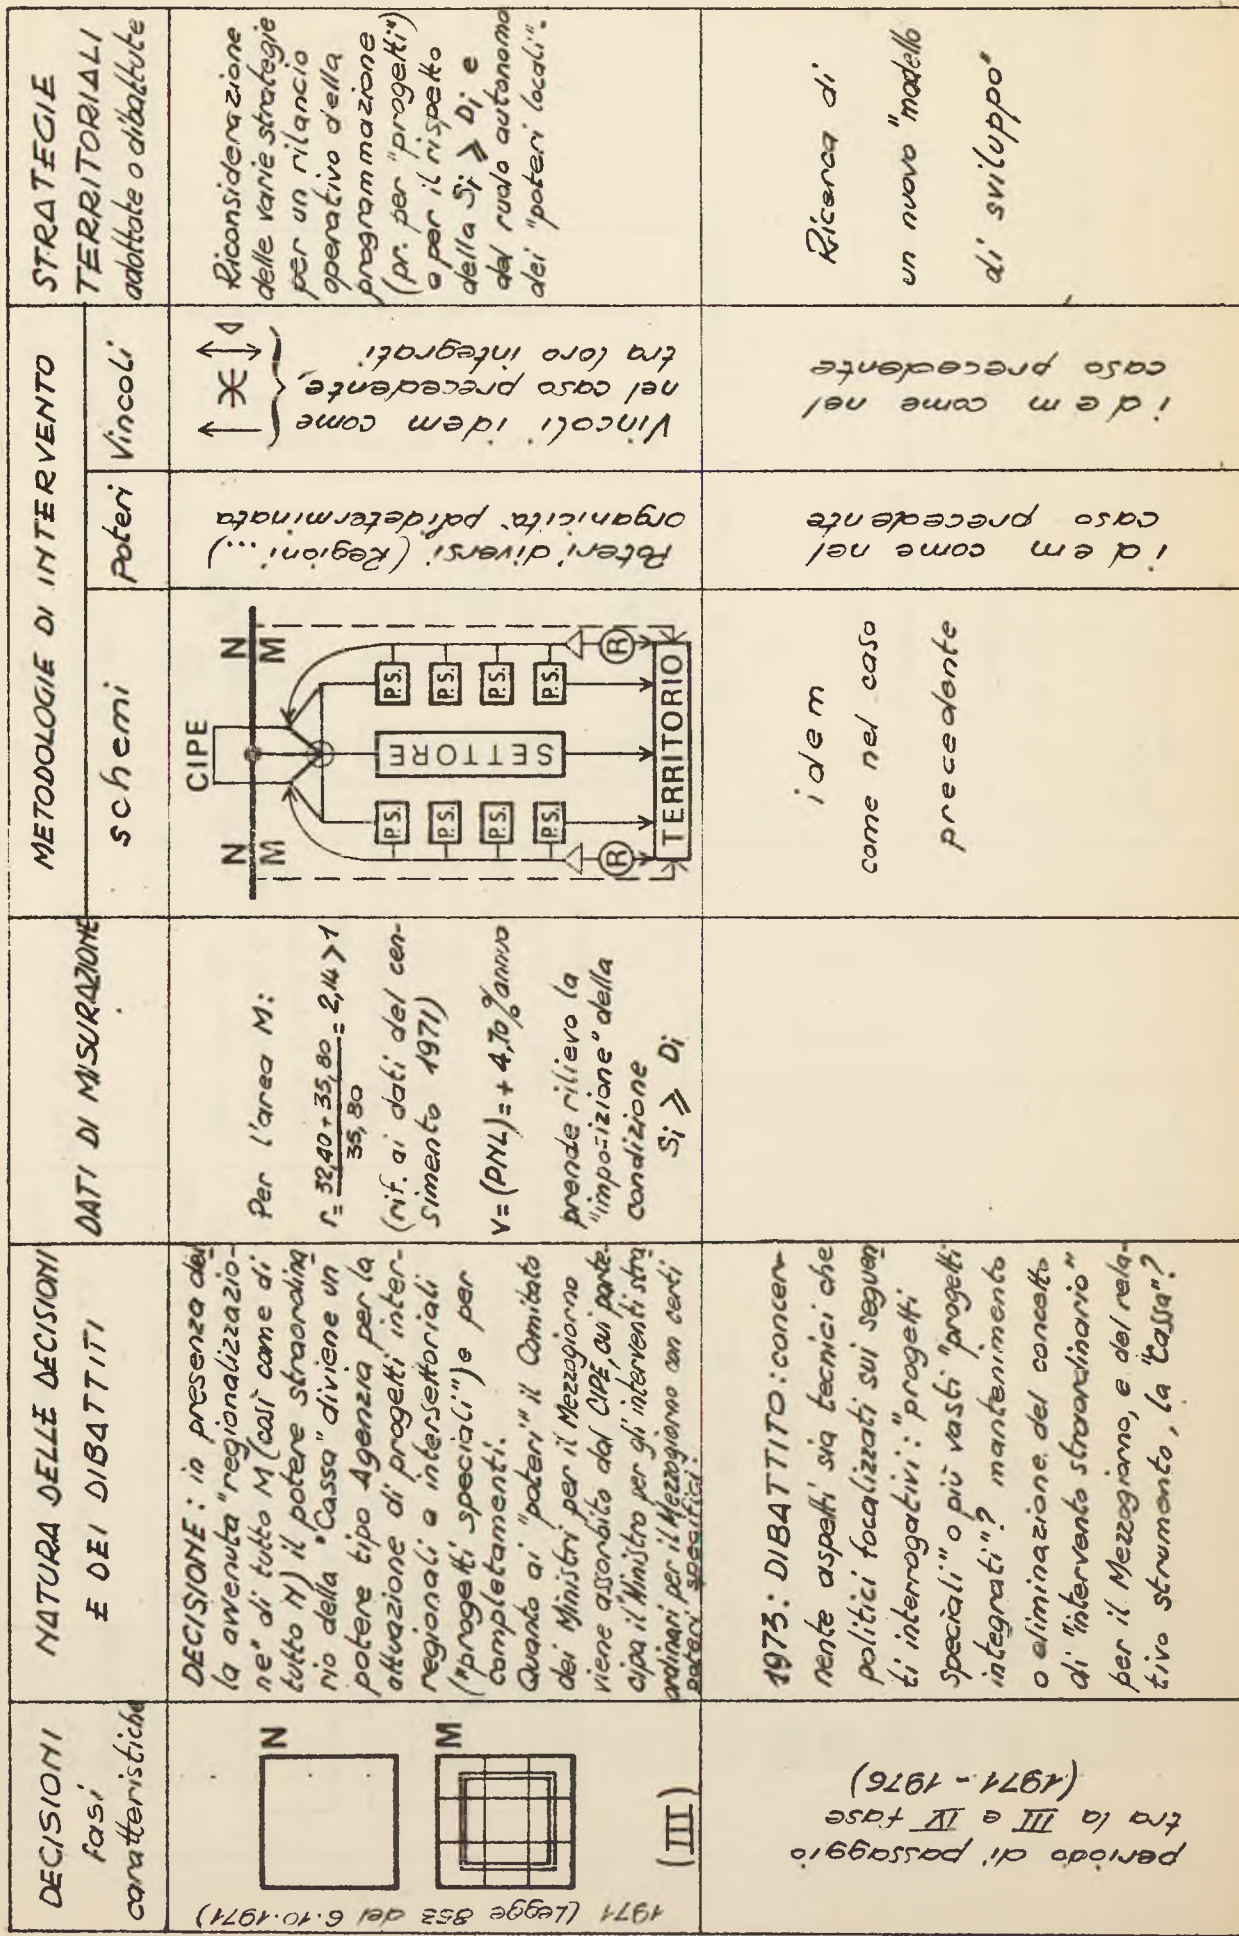 DECISIONI
fasi
caratteristiche
NATURA DELLE DECISIONI
E DEI DIBATTITI
DATI DI MISURAZIONE
METODOLOGIE DI INTERVENTO
schemi
Poteri
Vincoli
STRATEGIE
TERRITORIALI
adottate o dibattute
1971 (Legge 853 del 6.10.1971)
N
M
(III)
DECISIONE: in presenza del
la avvenuta "regionalizzazio-
ne" di tutto M (così come di
tutto N) il potere straordina
rio della "Cassa" diviene un
potere tipo Agenzia per la
attuazione di progetti inter-
regionali o intersettoriali
("progetti speciali") e per
completamenti.
Quanto ai "poteri" il Comitato
dei Ministri per il Mezzogiorno
viene assorbito dal CIPE, cui parte-
cipa il Ministro per gli interventi stra
ordinari per il Mezzogiorno con certi
poteri specifici.
Per l'area M:
r = 32,40 + 35,80 / 35,80 = 2,14 > 1
(rif. ai dati del cen-
simento 1971)
V = (PNL) = + 4,70 % annuo
prende rilievo la
"imposizione" della
condizione
Si ⩾ Di
CIPE
N N
M M
P.S. P.S.
P.S. P.S.
P.S. P.S.
P.S. P.S.
SETTORE
R R
TERRITORIO
Poteri diversi (Regioni ...)
organicità polideterminata
Vincoli idem come
nel caso precedente,
tra loro integrati
Riconsiderazione
delle varie strategie
per un rilancio
operativo della
programmazione
(pr. per "progetti")
e per il rispetto
della Si ⩾ Di e
del ruolo autonomo
dei "poteri locali".
periodo di passaggio
tra la III e IV fase
(1971 - 1976)
1973: DIBATTITO: concer-
nente aspetti sia tecnici che
politici focalizzati sui seguen
ti interrogativi: "progetti
speciali" o più vasti "progetti
integrati"? mantenimento
o eliminazione del concetto
di "intervento straordinario"
per il Mezzogiorno, e del rela-
tivo strumento, la "Cassa"?
idem
come nel caso
precedente
idem come nel
caso precedente
idem come nel
caso precedente
Ricerca di
un nuovo "modello
di sviluppo"